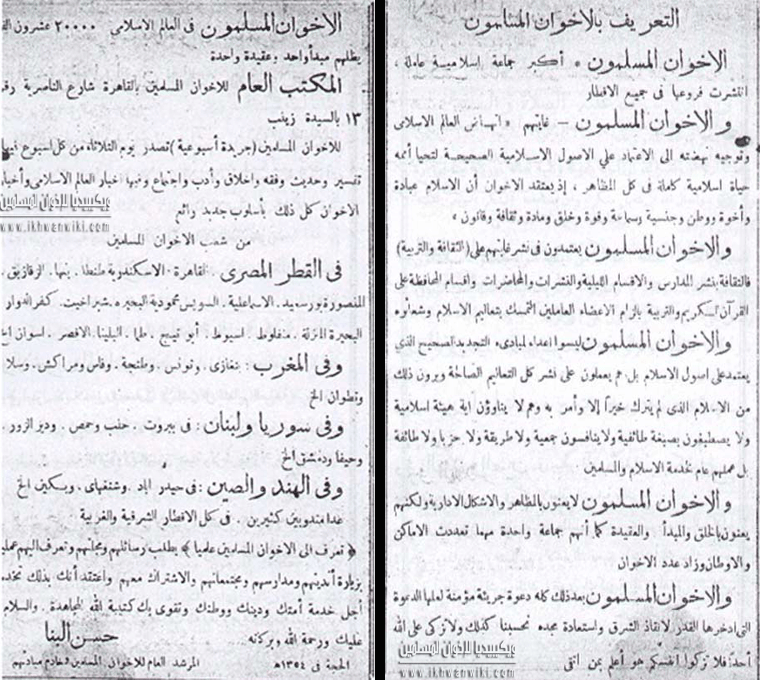 التعريف بالاخوان المسلمون
الاخوان المسلمون « أكبر جماعة إسلامية عاملة ،
انتشرت فروعها فى جميع الاقطار
والاخوان المسلمون — غايتهم العالم الاسلامى
وتوجيه نهضته الى الاعتماد على الاصول الاسلامية الصحيحة لتحيا أممه
حياة اسلامية كاملة فى كل المظاهر ، إذ يعتقد الاخوان أن الاسلام عبادة
وأخوة ووطن وجنسية وسماحة وقوة وخلق ومادة وثقافة وقانون »
والاخوان المسلمون يعتمدون فى نشر غايتهم على (الثقافة والتربية)
فالثقافة بنشر المدارس والاقسام الليلية والنشرات والمحاضرات واقسام المحافظة على
القرآن الكريم والتربية بالزام الاعضاء العاملين التمسك بتعاليم الاسلام وشعائره
والاخوان المسلمون ليسوا اعداء لمبادىء التجديد الصحيح الذى
يعتمد على اصول الاسلام بل هم يعملون على نشر كل التعاليم الصالحة ويرون ذلك
من الاسلام الذى لم يترك خيراً إلا وأمر به وهم لا يناوؤن اية هيئة اسلامية
ولا يصطبغون بصبغة طائفية ولا ينافسون جمعية ولا طريقة ولا حزبا ولا طائفة
بل عملهم عام لخدمة الاسلام والمسلمين
والاخوان المسلمون لا يعنون بالمظاهر والاشكال الادارية ولكنهم
يعنون بالخلق والمبدأ والعقيدة كما أنهم جماعة واحدة مهما تعددت الاماكن
والاوطان وزاد عدد الاخوان
والاخوان المسلمون بعد ذلك كله دعوة جريئة مؤمنة لعلها الدعوة
التى ادخرها القدر لانقاذ الشرق واستعادة مجده نحسبنا كذلك ولا نزكى على الله
أحداً فلا تزكوا أنفسكم هو أعلم بمن اتقى
ويكيبيديا الإخوان المسلمين
www.ikhwanwiki.com
الاخوان المسلمون فى العالم الاسلامى ٢٠٠٠٠ عشرون
يظلهم مبدأ واحد وعقيدة واحدة
المكتب العام للاخوان المسلمين بالقاهرة شارع الناصرية
١٣ بالسيدة زينب
للاخوان المسلمين (جريدة أسبوعية) تصدر يوم الثلاثاء من كل اسبوع فيها
تفسير وحديث وفقه واخلاق وأدب واجتماع وفيها اخبار العالم الاسلامى وأخبار
الاخوان كل ذلك بأسلوب جديد رائع
من شعب الاخوان المسلمين
فى القطر المصرى : القاهرة . الاسكندرية طنطا . بنها . الزقازيق .
المنصورة بورسعيد . الاسماعيلية . السويس محمودية البحيره . شبراخيت . كفر الدوار
البحيرة المنزلة . منفلوط . اسيوط . أبو تيج . طما . البلينا الاقصر . اسوان الخ
وفى المغرب : بنغازى . وتونس . وطنجة . وفاس ومراكش . وسلا
وتطوان الخ
وفى سوريا ولبنان : فى بيروت . حلب وحمص . ودير الزور .
وحيفا ودمشق الخ
وفى الهند والصين : فى حيدر اباد . وشنغهاى . الخ
عدا مندوبين كثيرين . فى كل الاقطار الشرقية والغربية
﴿ تعرف الى الاخوان المسلمين علميا ﴾ بطلب رسائلهم ومجلتهم وتعرف اليهم عمليا
بزيارة أنديتهم ومدارسهم ومجتمعاتهم والاشتراك معهم واعتقد أنك بذلك تخدم
أجل خدمة أمتك ودينك ووطنك وتقوى بك كتيبة الله المجاهدة . والسلام
عليك ورحمة الله وبركاته
حسن البنا
المرشد العام للاخوان المسلمين وخادم مبادئهم
الحجة فى ١٣٥٤ه
ويكيبيديا الإخوان المسلمين
www.ikhwanwiki.com